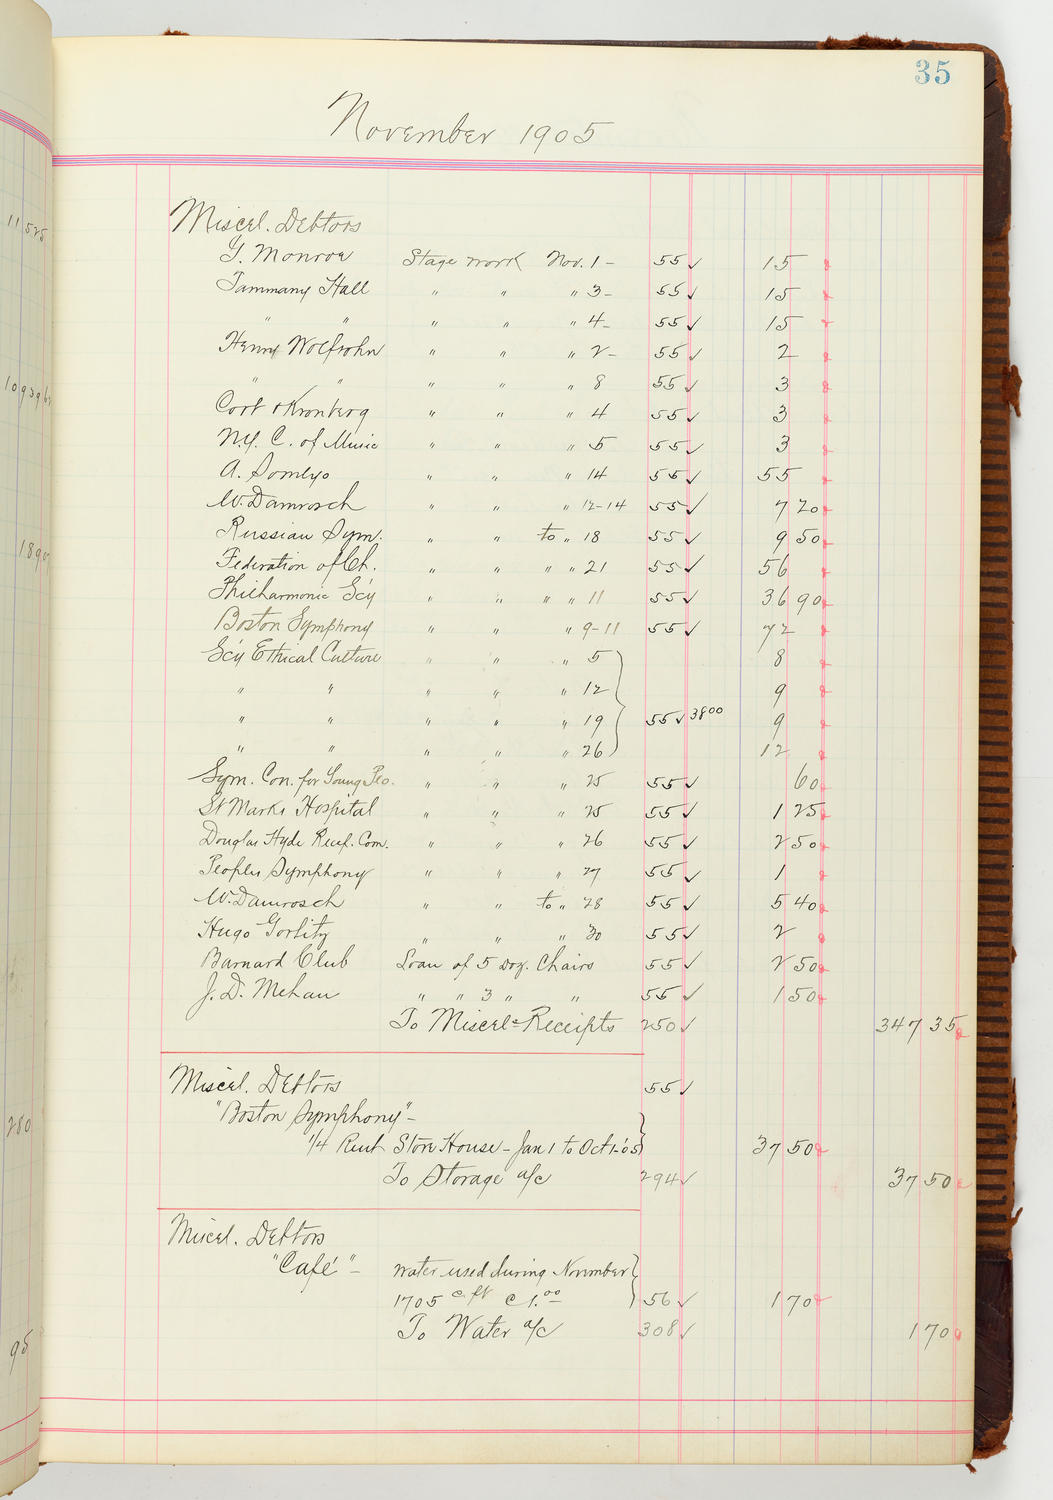 35
November 1905
Miscel. Debtors
G. Monroe Stage work Nov. 1 - 55 ✓ 15
Tammany Hall " " " 3 - 55 ✓ 15
" " " " " 4 - 55 ✓ 15
Henry Wolfsohn " " " 2 - 55 ✓ 2
" " " " " 8 55 ✓ 3
Cort & Kronberg " " " 4 55 ✓ 3
N.Y. C. of Music " " " 5 55 ✓ 3
A. Somlyo " " " 14 55 ✓ 55
W. Damrosch " " " 12-14 55 ✓ 7 20
Russian Sym. " " to " 18 55 ✓ 9 50
Federation of Ch. " " " " 21 55 ✓ 56
Philharmonic Sc'y " " " " 11 55 ✓ 36 90
Boston Symphony " " " 9-11 55 ✓ 72
Sc'y Ethical Culture " " " 5 8
" " " " " 12 9
" " " " " 19 55 ✓ 38 00 9
" " " " " 26 12
Sym. Con. for Young Peo. " " " 25 55 ✓ 60
St Marks Hospital " " " 25 55 ✓ 1 25
Douglas Hyde Recep. Com. " " " 26 55 ✓ 2 50
Peoples Symphony " " " 27 55 ✓ 1
W. Damrosch " " to " 28 55 ✓ 5 40
Hugo Gorlitz " " " 30 55 ✓ 2
Barnard Club Loan of 5 Doz. Chairs 55 ✓ 2 50
J. D. Mehan " " 3 " " 55 ✓ 1 50
To Miscels Receipts 250 ✓ 347 35
Miscel. Debtors 55 ✓
"Boston Symphony" -
1/4 Rent Store House - Jan 1 to Oct 1-05 37 50
To Storage a/c 294 ✓ 37 50
Miscel. Debtors
"Café" - Water used during November
1705 c. ft @ 1.00 56 ✓ 1 70
To Water a/c 308 ✓ 1 70
11525
1890
280
95